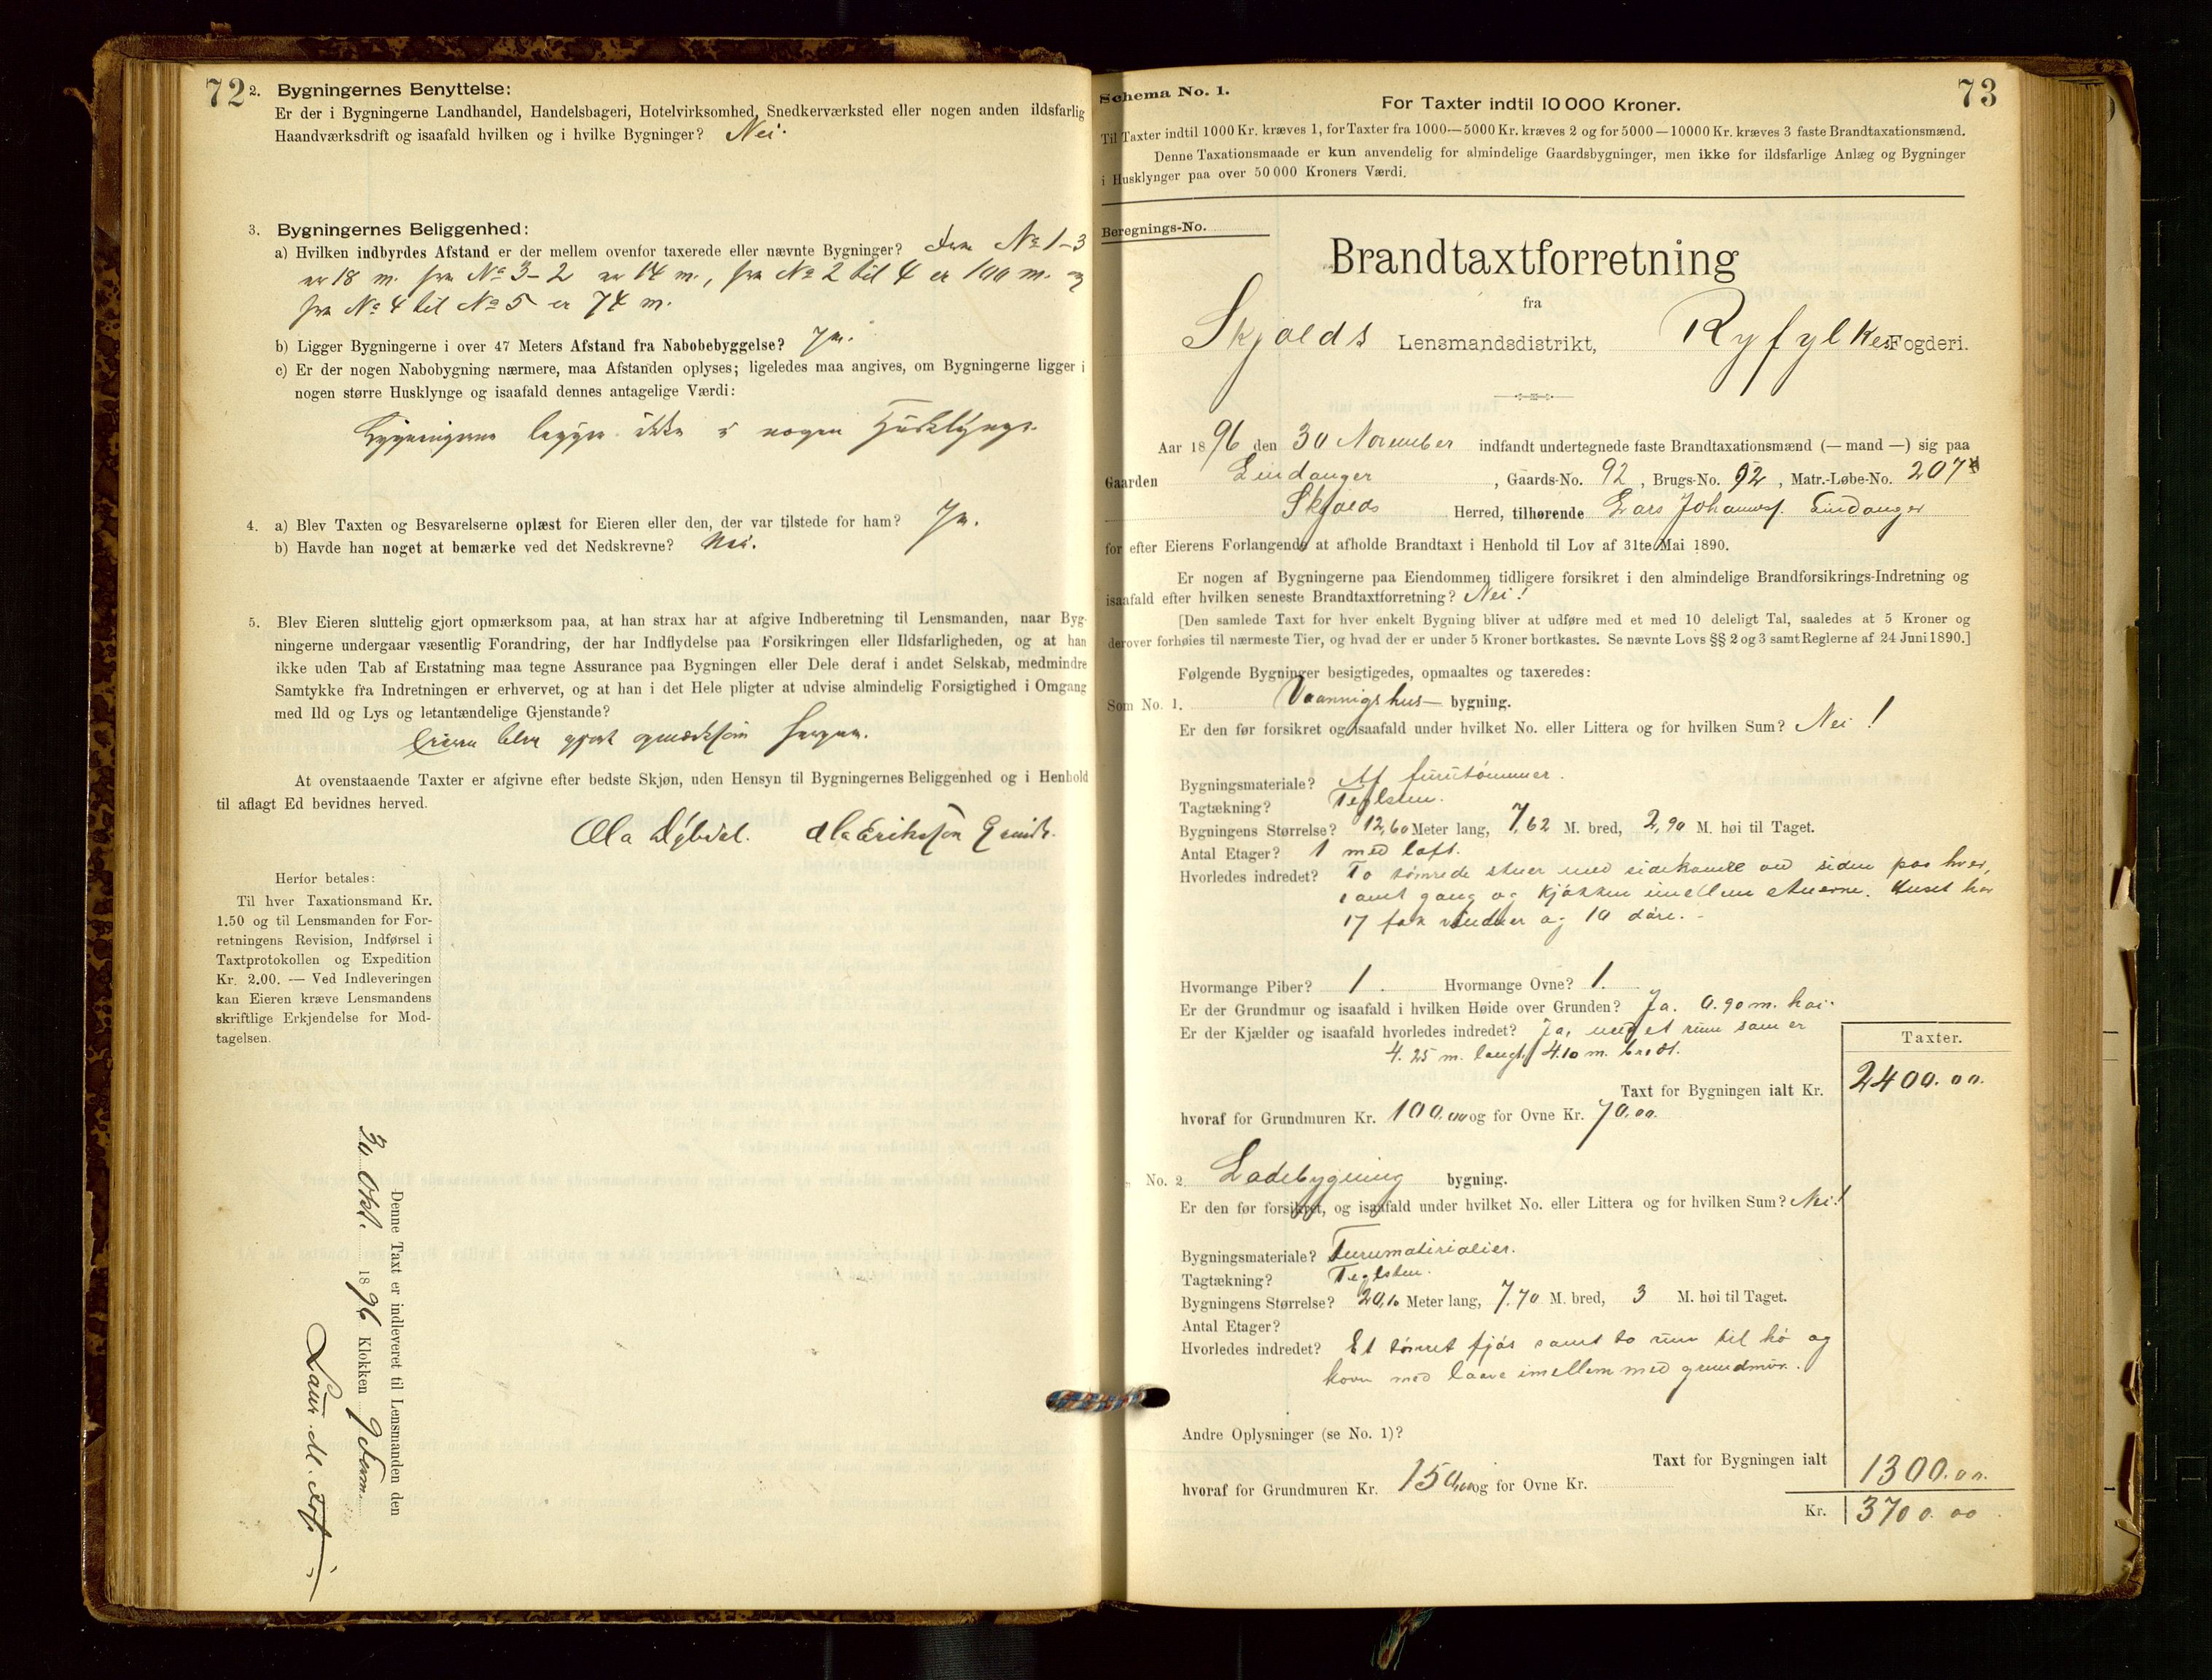 72
2. Bygningernes Benyttelse:
Er der i Bygningerne Landhandel, Handelsbageri, Hotelvirksomhed, Snedkerværksted eller nogen anden ildsfarlig
Haandværksdrift og isaafald hvilken og i hvilke Bygninger? Nei.
3. Bygningernes Beliggenhed:
a) Hvilken indbyrdes Afstand er der mellem ovenfor taxerede eller nævnte Bygninger? Fra No 1-3
er 18 m. fra No 3-2 er 14 m., fra No 2 til 4 er 100 m. og
fra No 4 til No 5 er 74 m.
b) Ligger Bygningerne i over 47 Meters Afstand fra Nabobebyggelse? Ja.
c) Er der nogen Nabobygning nærmere, maa Afstanden oplyses; ligeledes maa angives, om Bygningerne ligger i
nogen større Husklynge og isaafald dennes antagelige Værdi:
Bygningerne ligger ikke i nogen Husklynge.
4. a) Blev Taxten og Besvarelserne oplæst for Eieren eller den, der var tilstede for ham? Ja.
b) Havde han noget at bemærke ved det Nedskrevne? Nei.
5. Blev Eieren sluttelig gjort opmærksom paa, at han strax har at afgive Indberetning til Lensmanden, naar Byg-
ningerne undergaar væsentlig Forandring, der har Indflydelse paa Forsikringen eller Ildsfarligheden, og at han
ikke uden Tab af Erstatning maa tegne Assurance paa Bygningen eller Dele deraf i andet Selskab, medmindre
Samtykke fra Indretningen er erhvervet, og at han i det Hele pligter at udvise almindelig Forsigtighed i Omgang
med Ild og Lys og letantændelige Gjenstande?
Eieren blev gjort opmærksom herpaa.
At ovenstaaende Taxter er afgivne efter bedste Skjøn, uden Hensyn til Bygningernes Beliggenhed og i Henhold
til aflagt Ed bevidnes herved.
Ola Eriksson
Herfor betales:
Til hver Taxationsmand Kr.
1.50 og til Lensmanden for For-
retningens Revision, Indførsel i
Taxtprotokollen og Expedition
Kr. 2.00. — Ved Indleveringen
kan Eieren kræve Lensmandens
skriftlige Erkjendelse for Mod-
tagelsen.
Denne Taxt er indleveret til Lensmanden den
30 Okt. 1896 Klokken 9 Form.
73
Schema No. 1.
For Taxter indtil 10 000 Kroner.
Til Taxter indtil 1000 Kr. kræves 1, for Taxter fra 1000—5000 Kr. kræves 2 og for 5000—10000 Kr. kræves 3 faste Brandtaxationsmænd.
Denne Taxationsmaade er kun anvendelig for almindelige Gaardsbygninger, men ikke for ildsfarlige Anlæg og Bygninger
i Husklynger paa over 50 000 Kroners Værdi.
Beregnings-No.
Brandtaxtforretning
fra
Skjolds Lensmandsdistrikt, Ryfylkes Fogderi.
Aar 1896 den 30 November indfandt undertegnede faste Brandtaxationsmænd (— mand —) sig paa
Gaarden Eindanger, Gaards-No. 92, Brugs-No. 92, Matr.-Løbe-No. 207
Skjolds Herred, tilhørende Lars Johannesf. Eindanger
for efter Eierens Forlangende at afholde Brandtaxt i Henhold til Lov af 31te Mai 1890.
Er nogen af Bygningerne paa Eiendommen tidligere forsikret i den almindelige Brandforsikrings-Indretning og
isaafald efter hvilken seneste Brandtaxtforretning? Nei!
[Den samlede Taxt for hver enkelt Bygning bliver at udføre med et med 10 deleligt Tal, saaledes at 5 Kroner og
derover forhøies til nærmeste Tier, og hvad der er under 5 Kroner bortkastes. Se nævnte Lovs §§ 2 og 3 samt Reglerne af 24 Juni 1890.]
Følgende Bygninger besigtigedes, opmaaltes og taxeredes:
Som No. 1. Vaannigshus— bygning.
Er den før forsikret og isaafald under hvilket No. eller Littera og for hvilken Sum? Nei!
Bygningsmateriale? Af furutømmer.
Tagtækning? Teglsten.
Bygningens Størrelse? 12,60 Meter lang, 7,62 M. bred, 2,90 M. høi til Taget.
Antal Etager? 1 med loft.
Hvorledes indredet? To tømrede stuer med sidekamre ved siden paa hver,
samt gang og kjøkken imellem stuerne. Huset har
17 fak vinduer og 10 døre.
Hvormange Piber? 1. Hvormange Ovne? 1.
Er der Grundmur og isaafald i hvilken Høide over Grunden? Ja. 0.90 m. høi.
Er der Kjælder og isaafald hvorledes indredet? Ja, med et rum som er
4.25 m. langt, 4.10 m. bredt.
Taxter.
Taxt for Bygningen ialt Kr. 2400.00.
hvoraf for Grundmuren Kr. 100.00 og for Ovne Kr. 70.00.
No. 2. Ladebygning bygning.
Er den før forsikret, og isaafald under hvilket No. eller Littera og for hvilken Sum? Nei!
Bygningsmateriale? Furumaterialier.
Tagtækning? Teglsten.
Bygningens Størrelse? 20,10 Meter lang, 7.70 M. bred, 3 M. høi til Taget.
Antal Etager?
Hvorledes indredet? Et tømret fjøs samt to rum til hø og
korn med laave imellem med grundmur.
Andre Oplysninger (se No. 1)?
Taxt for Bygningen ialt 1300.00.
hvoraf for Grundmuren Kr. 150,00 og for Ovne Kr.
Kr. 3700.00